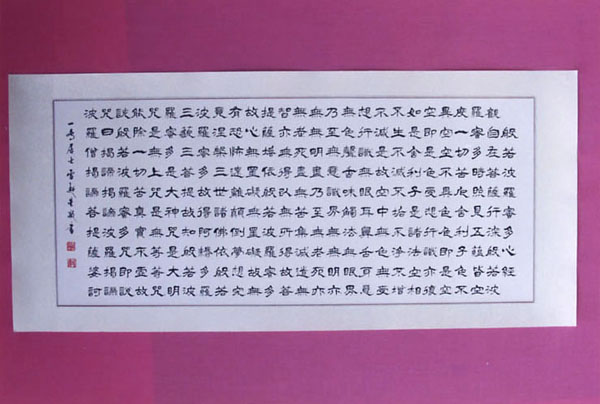 般若波羅蜜多心經
觀自在菩薩行深般若波
羅蜜多時照見五蘊皆空
度一切苦厄舍利子色不
異空空不異色色即是空
空即是色受想行識亦復
如是舍利子是諸法空相
不生不滅不垢不淨不增
不減是故空中無色無受
想行識無眼耳鼻舌身意
無色聲香味觸法無眼界
乃至無意識界無無明亦
無無明盡乃至無老死亦
無老死盡無苦集滅道無
智亦無得以無所得故菩
提薩埵依般若波羅蜜多
故心無罣礙無罣礙故無
有恐怖遠離顛倒夢想究
竟涅槃三世諸佛依般若
波羅蜜多故得阿耨多羅
三藐三菩提故知般若波
羅蜜多是大神咒是大明
咒是無上咒是無等等咒
能除一切苦真實不虛故
說般若波羅蜜多咒即說
咒曰揭諦揭諦波羅揭諦
波羅僧揭諦菩提薩婆訶
一居士書